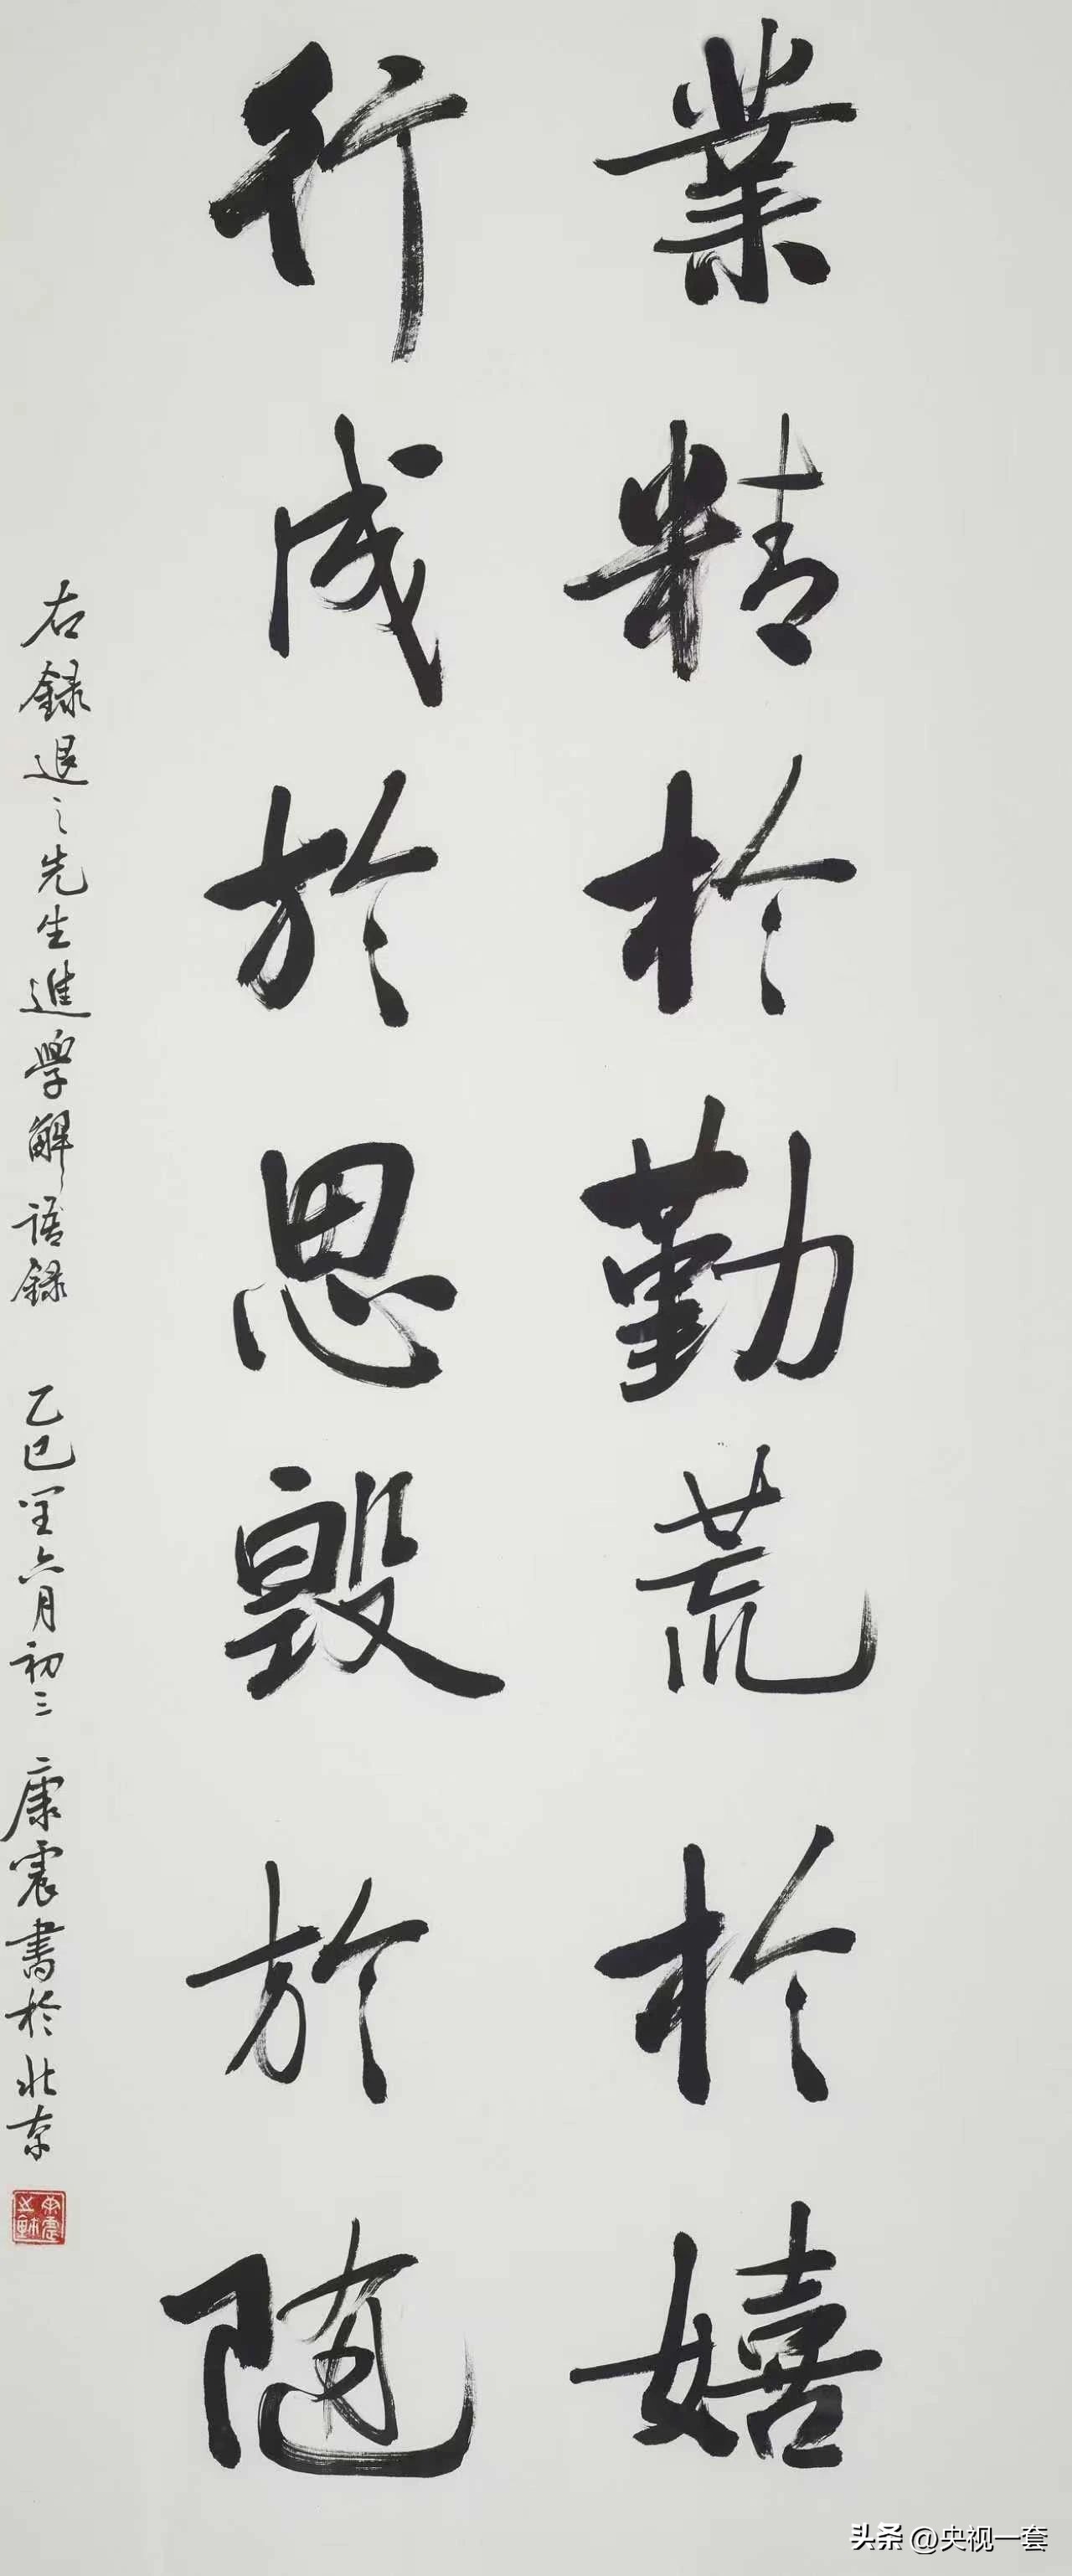 業精於勤荒於嬉
行成於思毀於隨
右録退之先生進學解語録 乙巳閏六月初三 康震書於北京
头条 @央视一套